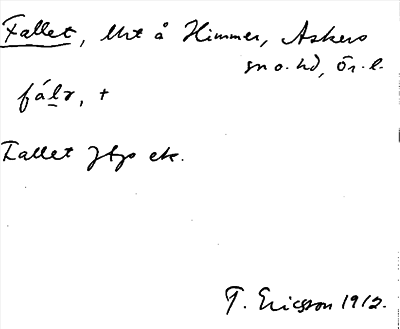 Fallet, Uht å Himmer, Askers
sn o. hd, Ör. l.
fálɂ, +
Fallet Jfp ek.
T. Ericsson 1912.